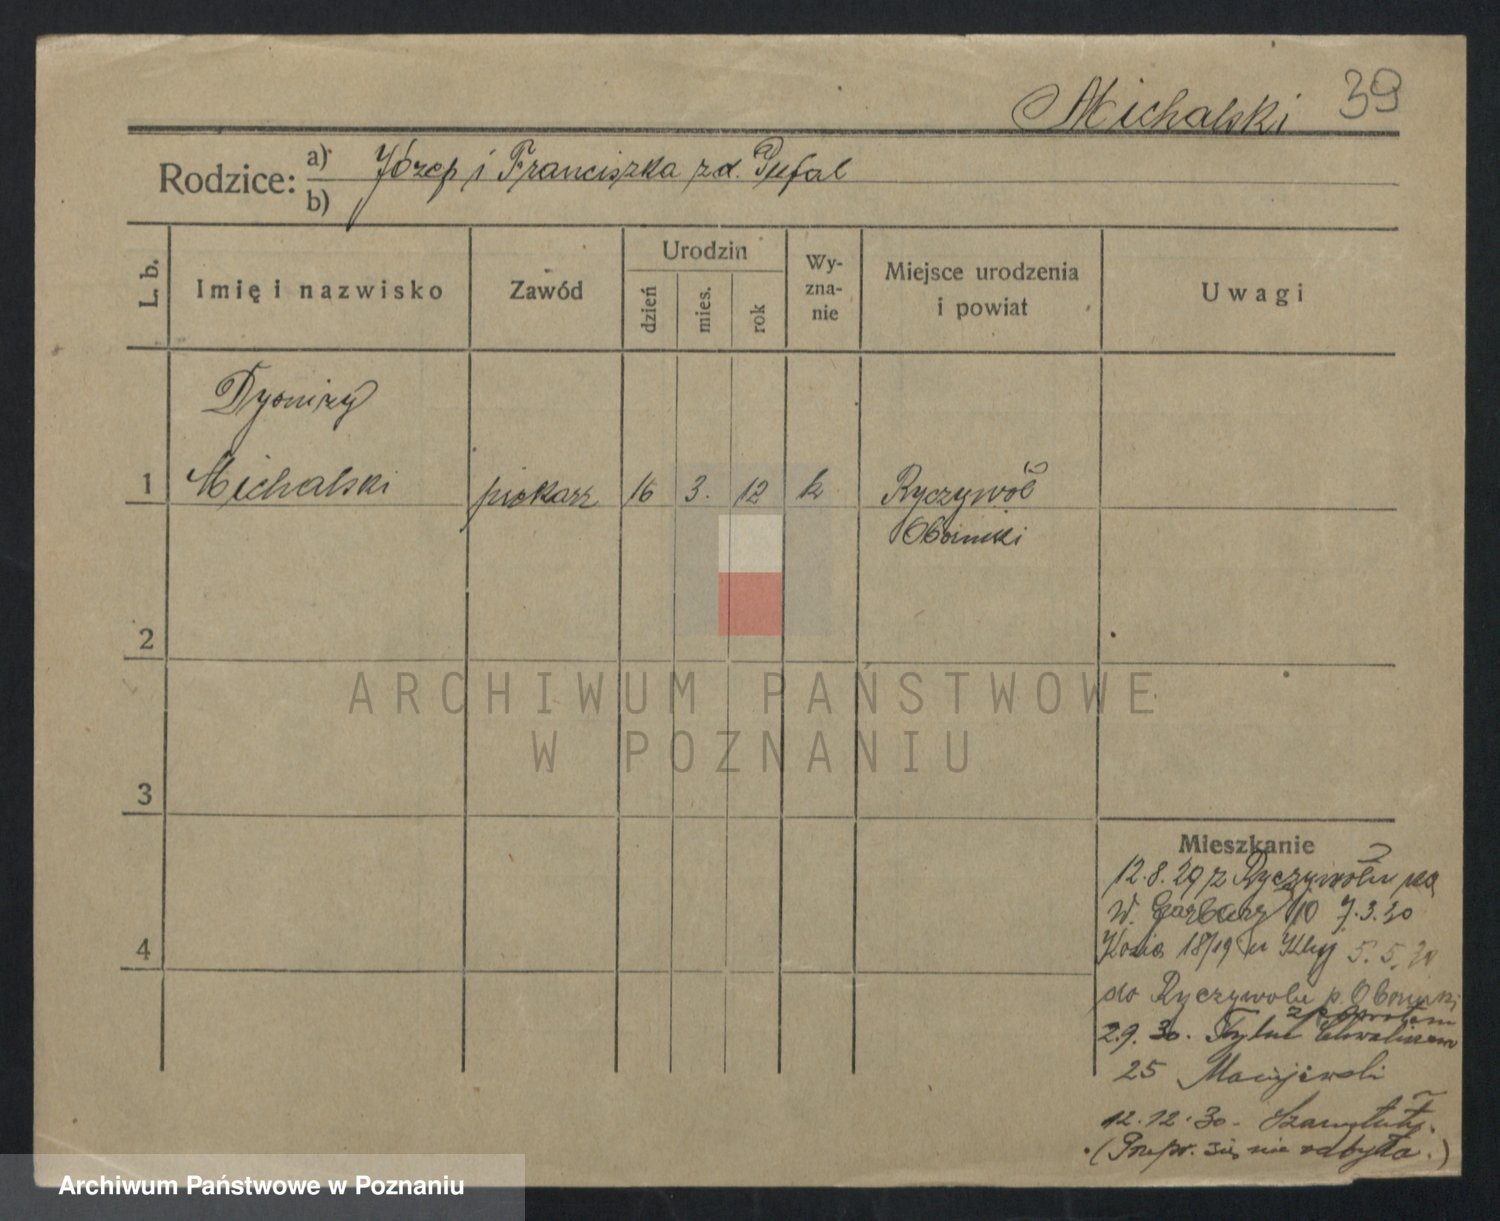 Michalski 39
Rodzice: a) Józef i Franciszka zd. Pufal
b)
L. b.
Imię i nazwisko
Zawód
Urodzin
dzień
mies.
rok
Wy-
zna-
nie
Miejsce urodzenia
i powiat
Uwagi
Dyonizy
1 Michalski piekarz 16 3. 12 k Ryczywół
Oborniki
2
3
4
Mieszkanie
12.8.29 z Ryczywołu na
W. Garbary 10 7.3.30
Kozia 18/19 u 5.5.30
do Ryczywołu p. Oborniki
z powrotem
2.9.30. Tylne Chwaliszewo
25 Maciejewski
12.12.30. Szamotuły.
(Przepr. się nie odbyła.)
ARCHIWUM PAŃSTWOWE
W POZNANIU
Archiwum Państwowe w Poznaniu